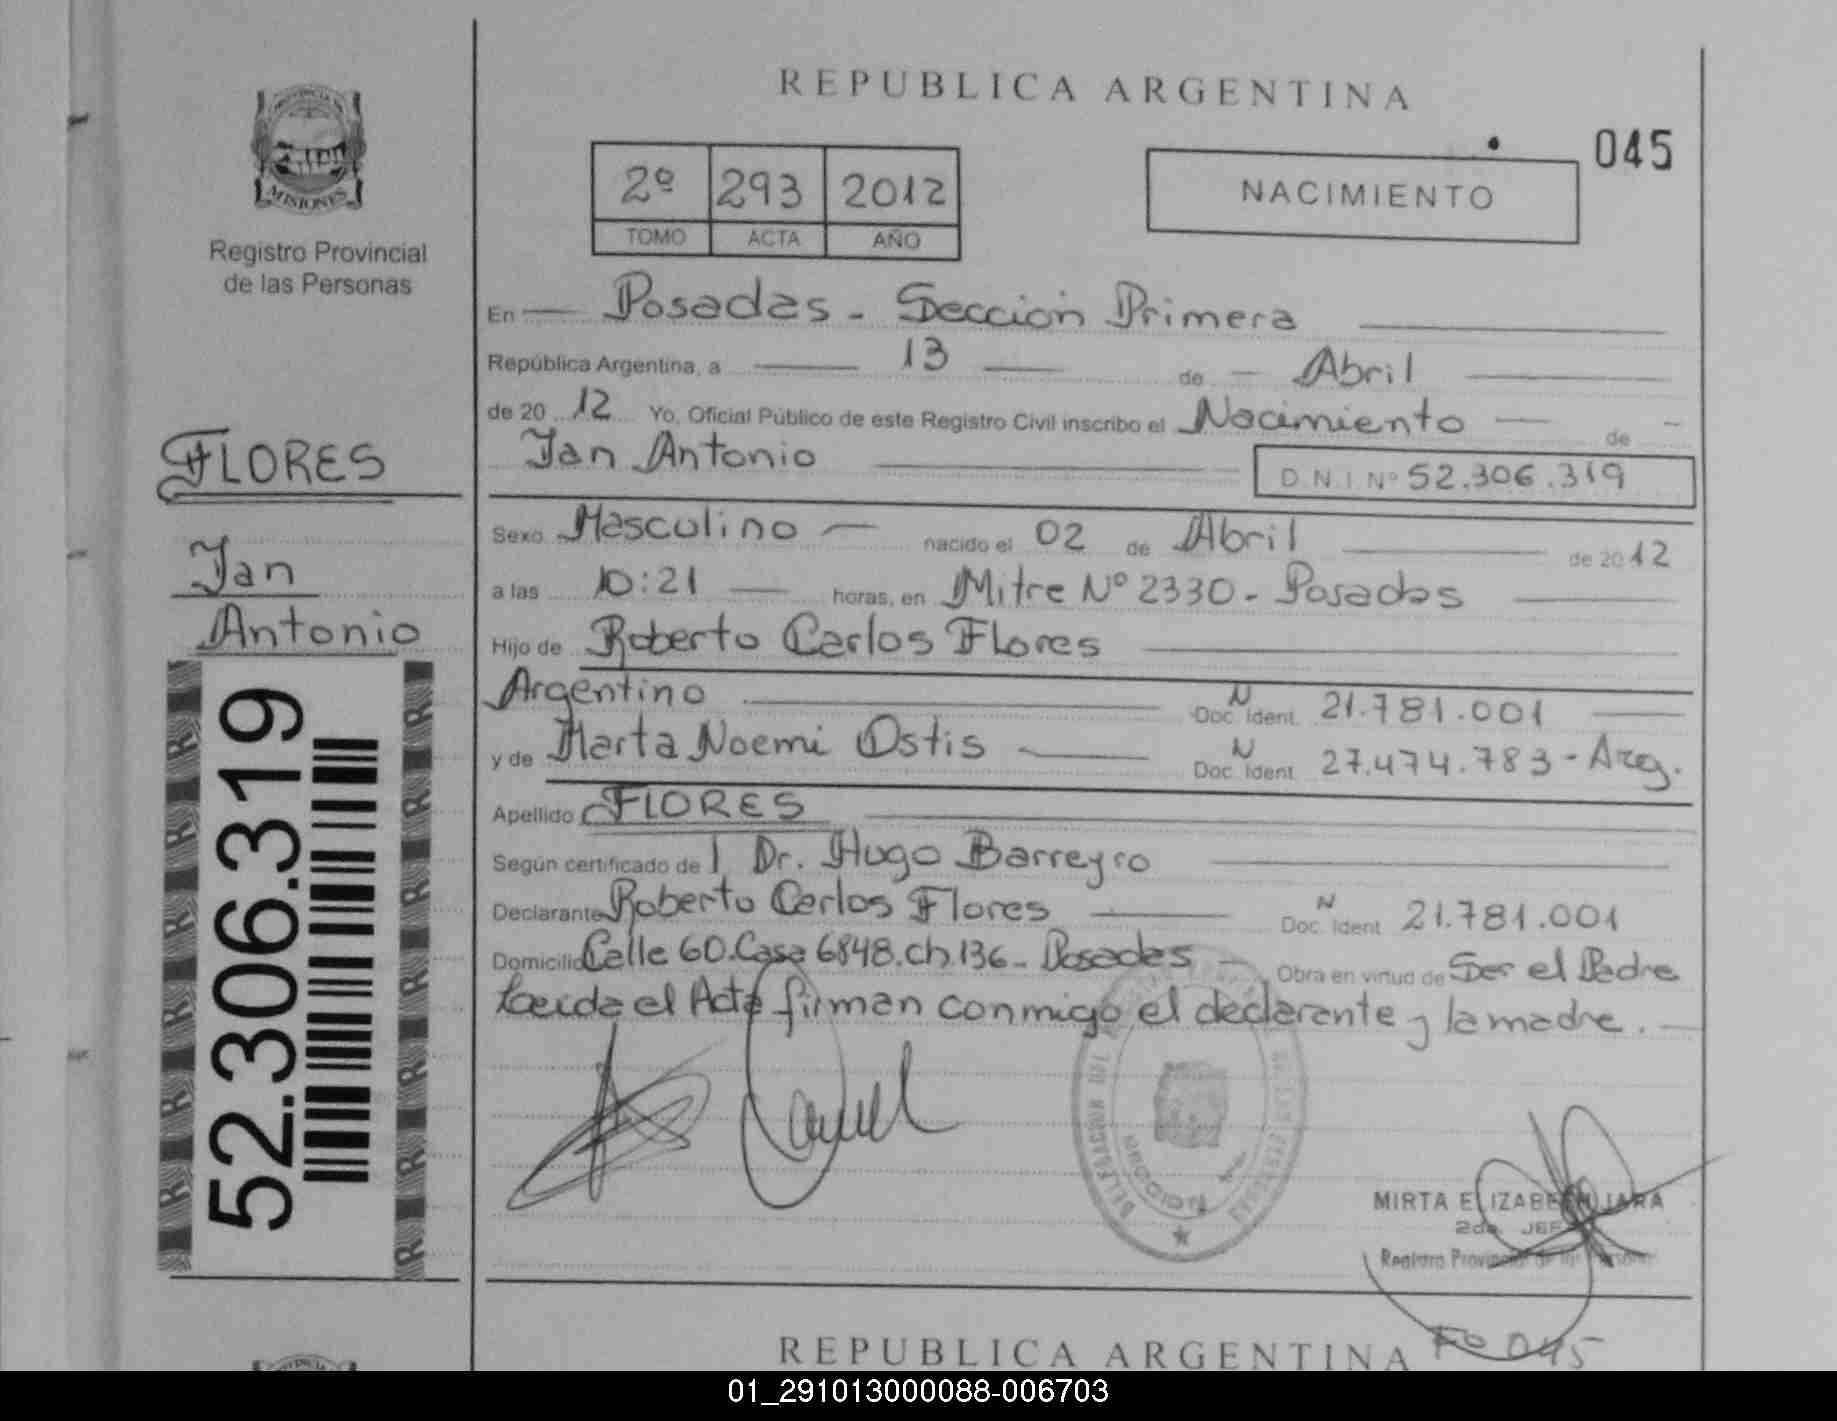 REPUBLICA ARGENTINA
045
PROVINCIA DE
MISIONES
Registro Provincial
de las Personas
2º 293 2012
TOMO ACTA AÑO
NACIMIENTO
En Posadas - Sección Primera
República Argentina, a 13 de Abril
de 20 12 Yo, Oficial Público de este Registro Civil inscribo el Nacimiento de
Ian Antonio D.N.I. Nº 52.306.319
FLORES
Ian
Antonio
52.306.319
Sexo Masculino nacido el 02 de Abril de 20 12
a las 10:21 horas, en Mitre Nº 2330 - Posadas
Hijo de Roberto Carlos Flores
Argentino N Doc. Ident. 21.781.001
y de Marta Noemi Ostis N Doc. Ident. 27.474.783 - Arg.
Apellido FLORES
Según certificado de l Dr. Hugo Barreyro
Declarante Roberto Carlos Flores N Doc. Ident. 21.781.001
Domicilio Calle 60. Casa 6848. ch. 136 - Posadas Obra en virtud de Ser el Padre
Leida el Acta firman conmigo el declarante y la madre.
MIRTA ELIZABETH JARA
2da JEF
Registro Provincial de las Personas
REPUBLICA ARGENTINA
Fº 045
01_291013000088-006703